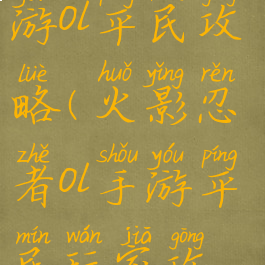 游ol平民攻
lüè huǒ yǐng rěn
略(火影忍
zhě shǒu yóu píng
者ol手游平
mín wán jiā gōng
民玩家攻